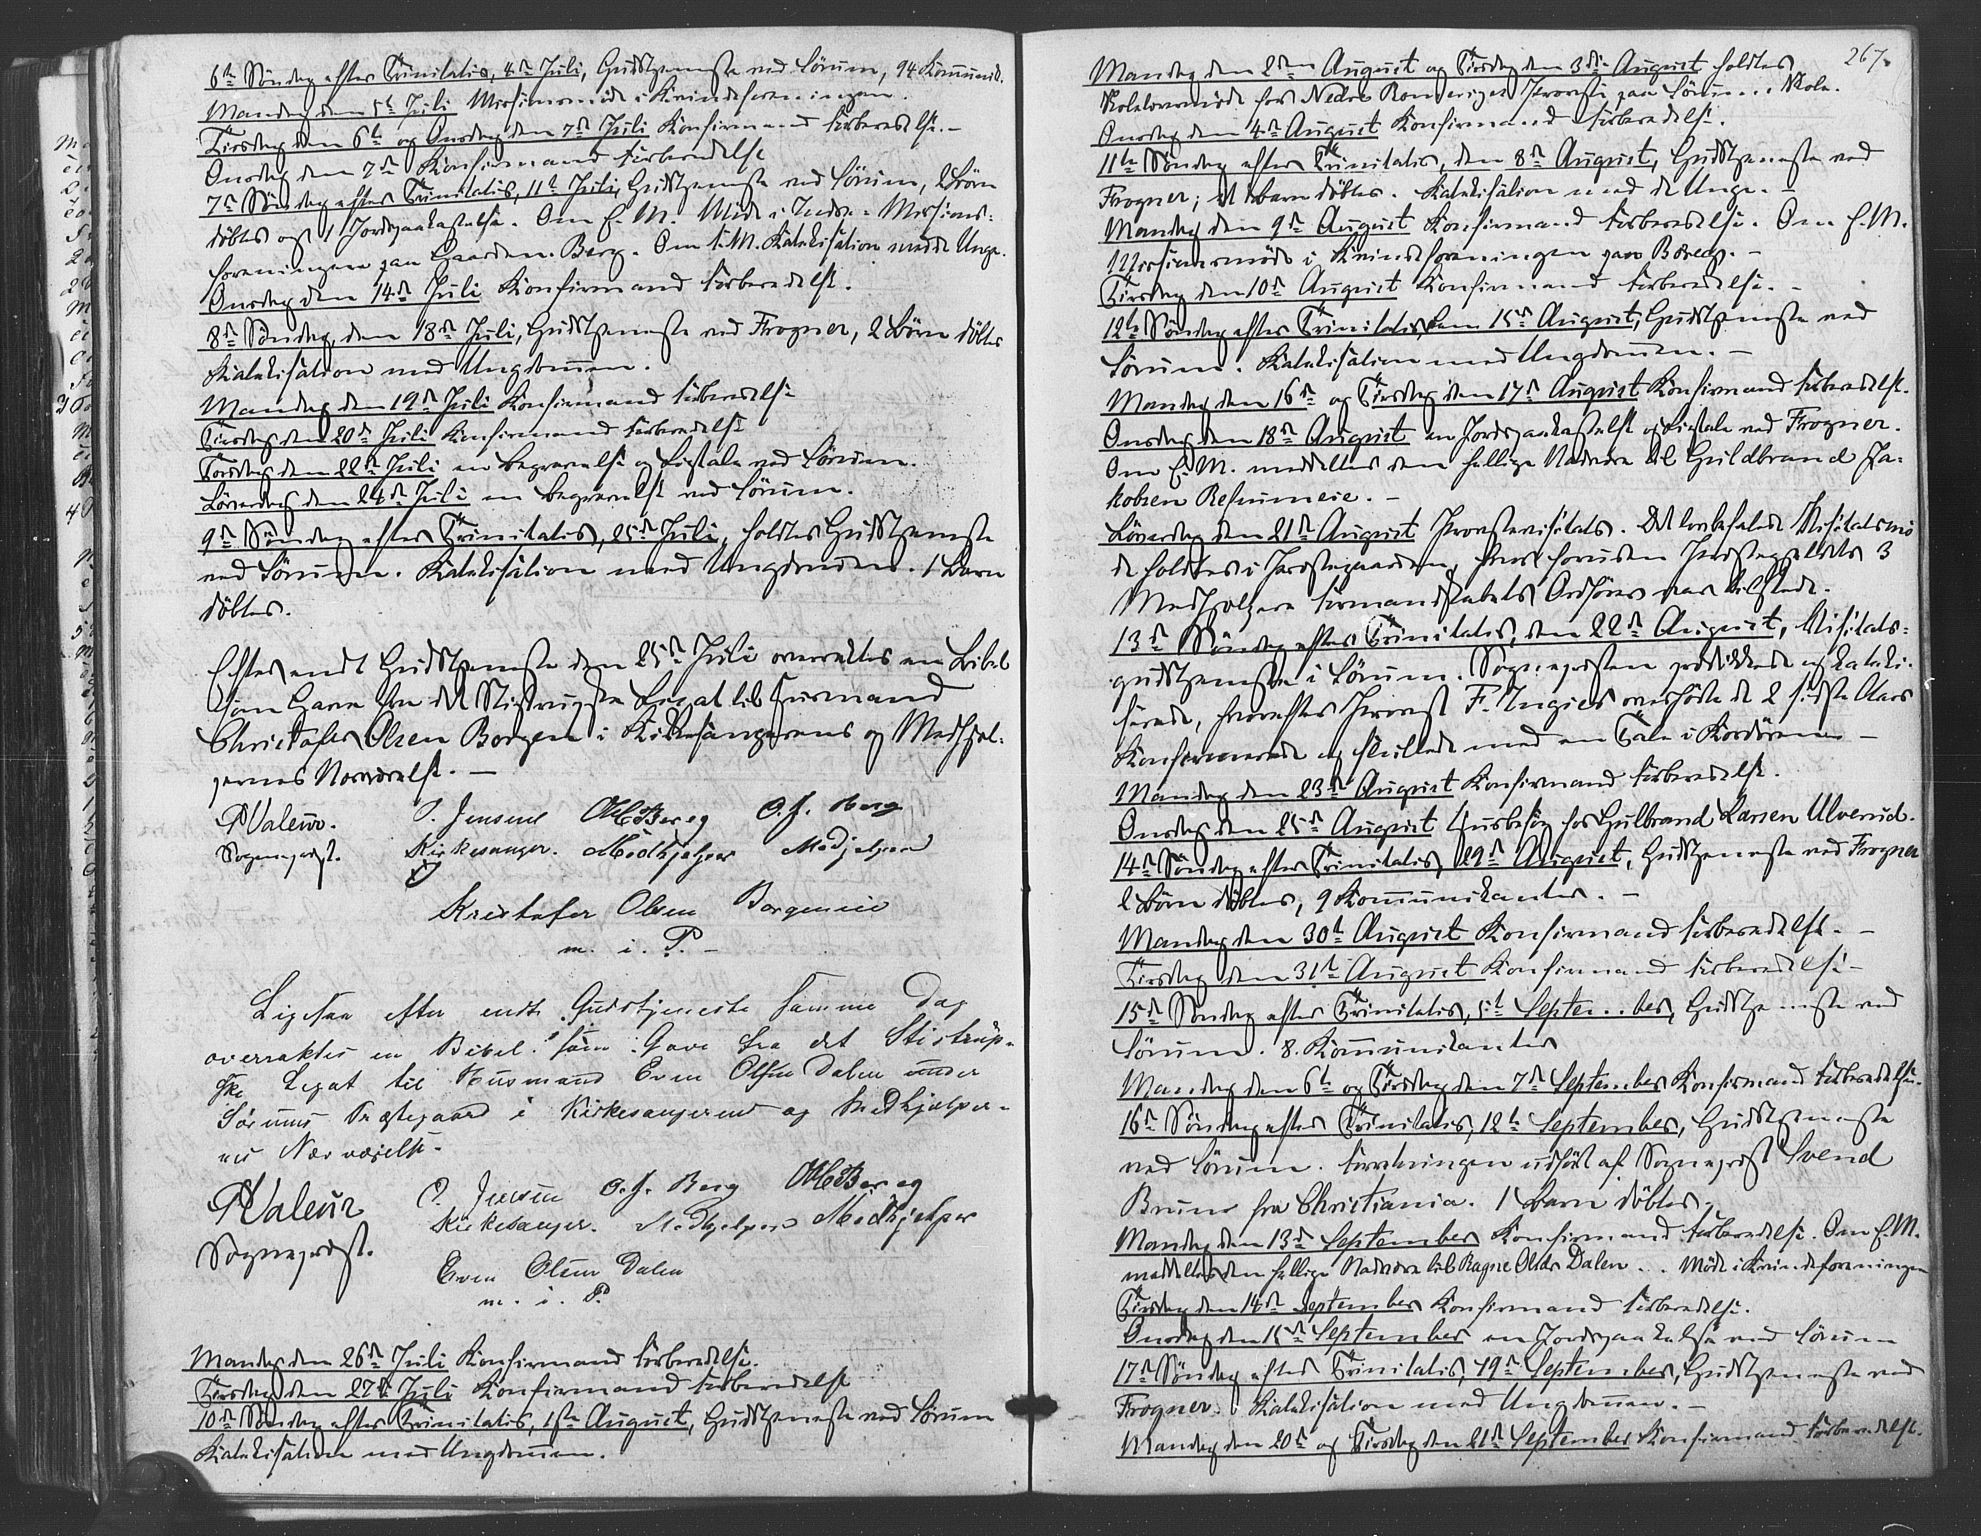 6te Söndag efter Trinitatis, 4de Juli, Gudstjeneste ved Sörum, 94 Kommunik.
Mandag den 5te Juli Missionsmöde i Kvindeforeningen.
Tirsdag den 6te og Onsdag den 7de Juli Konfirmand Forberedelse. -
Onsdag den 7de Konfirmand Forberedelse
7de Söndag efter Trinitatis, 11te Juli, Gudstjeneste ved Sörum, 2 Börn
döbtes og 1 Jordpaakastelse. Om E. M. Möde i Indre-Missions-
foreningen paa Gaarden Berg. Om F. M. Katekisation med de Unge.
Onsdag den 14de Juli Konfirmand Forberedelse.
8de Söndag, den 18de Juli, Gudstjeneste ved Frogner, 2 Börn döbtes
Katekisation med Ungdommen.
Mandag den 19de Juli Konfirmand Forberedelse
Tirsdag den 20de Juli Konfirmand Forberedelse
Torsdag den 22de Juli en Begravelse og Ligtale ved Sörum.
Löverdag den 24de Juli en Begravelse ved Sörum.
9de Söndag efter Trinitatis, 25de Juli, holdtes Gudstjeneste
ved Sörum. Katekisation med Ungdommen. 1 Barn
döbtes.
Efter endt Gudstjeneste den 25de Juli overraktes en Bibel
som Gave fra det Stistrupske Legat til Huusmand
Christofer Olsen Borgen i Kirkesangerens og Medhjæl-
pernes Nærværelse. -
P Valeur. P. Jensen O H Bereg O. J. Berg
Sogneprest. Kirkesanger. Medhjelper Medjelper
Kristofer Olsen Borgeneie
m. i. P. -
Ligesaa efter endt Gudstjeneste samme Dag
overraktes en Bibel som Gave fra det Stistrup-
ske Legat til Husmand Even Olsen Dalen under
Sörums Præstegaard i Kirkesangerens og Medhjælper-
nes Nærværelse.
P Valeur P. Jensen O. J. Berg O H Bereg
Sogneprest. Kirkesanger. Medhjelper Medhjelper
Even Olsen Dalen
m. i. P.
Mandag den 26de Juli Konfirmand Forberedelse.
Tirsdag den 27de Juli Konfirmand Forberedelse
10de Söndag efter Trinitatis, 1ste August, Gudstjeneste ved Sörum
Katekisation med Ungdommen.
267.
Mandag den 2den August og Tirsdag den 3die August holdtes
Skolelærermöde for Nedre Romeriges Provsti paa Sörum Skole.
Onsdag den 4de August Konfirmand Forberedelse.
11te Söndag efter Trinitatis, den 8de August, Gudstjeneste ved
Frogner; et Barn döbtes. Katekisation med de Unge. -
Mandag den 9de August Konfirmand Forberedelse. Om E. M.
Missionsmöde i Kvindeforeningen paa Bereg. -
Tirsdag den 10de August Konfirmand Forberedelse. -
12te Söndag efter Trinitatis, den 15de August, Gudstjeneste ved
Sörum. Katekisation med Ungdommen. -
Mandag den 16de og Tirsdag den 17de August Konfirmand Forberedelse.
Onsdag den 18de August en Jordpaakastelse og Ligtale ved Frogner.
Om E. M. meddeltes den hellige Nadvere til Guldbrand Ja-
kobsen Refsumeie. -
Löverdag den 21de August Provstevisitats. Det lovbefalede Visitatsmö-
de holdtes i Præstegaarden, hvor foruden Præstegjeldets 3
Medhjelpere Formandskabets Ordförer var tilstede.
13de Söndag efter Trinitatis, den 22de August, Visitats-
gudstjeneste i Sörum. Sognepresten prædikede og kateki-
serede, hvorefter Provst F. Ingier overhörte de 2 sidste Aars
Konfirmerede og sluttede med en Tale i Kordören. -
Mandag den 23de August Konfirmand Forberedelse.
Onsdag den 25de August Husbesög hos Gulbrand Larsen Ulverud.
14de Söndag efter Trinitatis, 29de August, Gudstjeneste ved Frogner
2 Börn döbtes, 9 Kommunikanter. -
Mandag den 30te August Konfirmand Forberedelse. -
Tirsdag den 31te August Konfirmand Forberedelse -
15de Söndag efter Trinitatis, 5te September, Gudstjeneste ved
Sörum. 8. Kommunikanter
Mandag den 6te og Tirsdag den 7de September Konfirmand Forberedelse.
16de Söndag efter Trinitatis, 12te September, Gudstjeneste
ved Sörum. Forretningen udfört af Sogneprest Svend
Bruun fra Christiania. 1 Barn döbtes.
Mandag den 13de September Konfirmand Forberedelse. Om E. M.
meddeltes den hellige Nadvere til Ragne Olsdr Dalen. Möde i Kvindeforeningen
Tirsdag den 14de September Konfirmand Forberedelse.
Onsdag den 15de September en Jordpaakastelse ved Sörum
17de Söndag efter Trinitatis, 19de September, Gudstjeneste ved
Frogner. Katekisation med Ungdommen. -
Mandag den 20de og Tirsdag den 21de September Konfirmand Forberedelse.